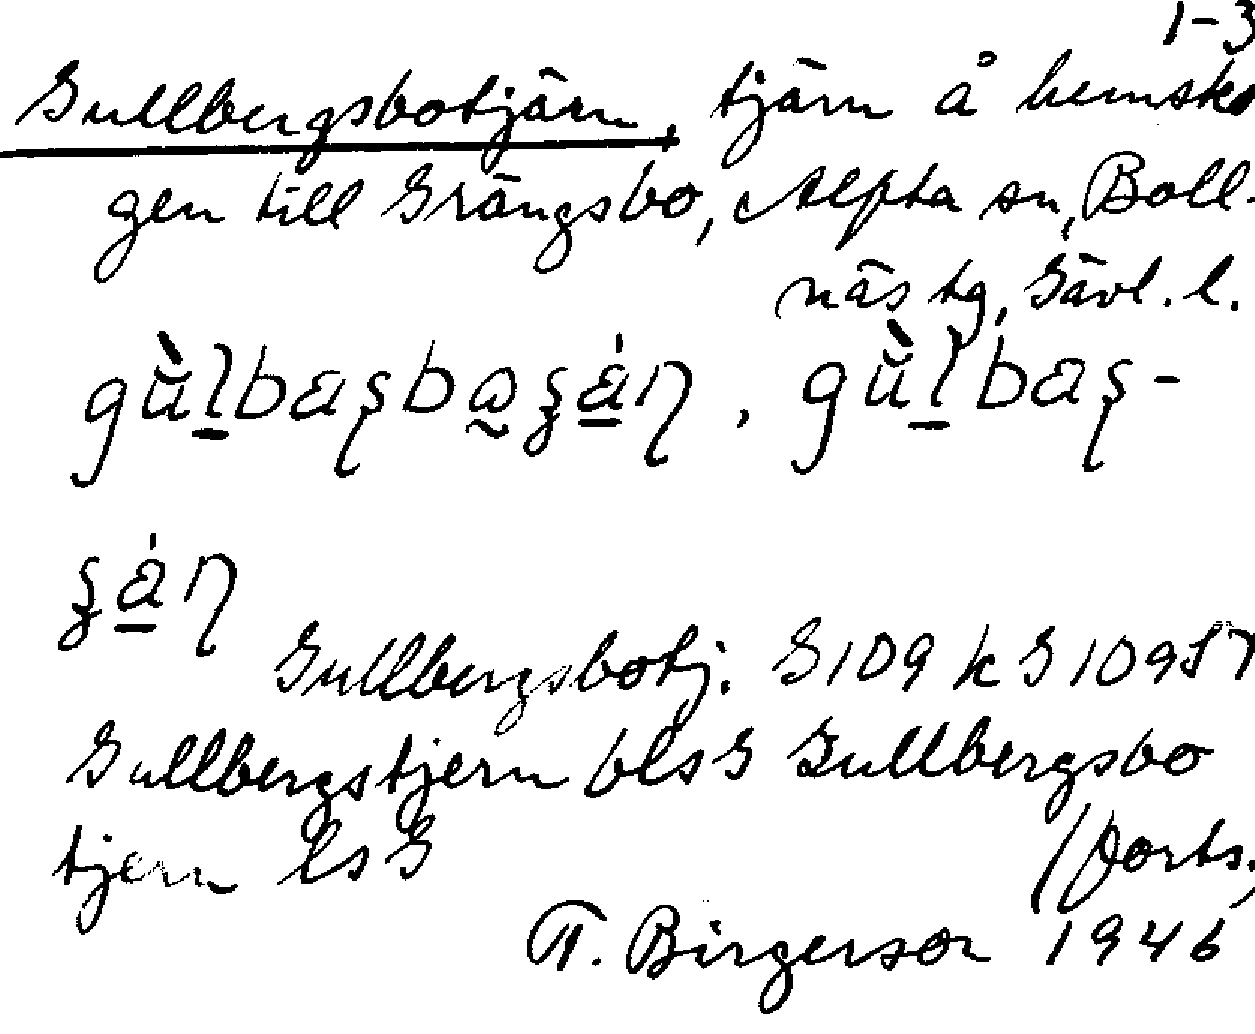 1-3
Gullbergsbotjärn, tjärn å hemsko
gen till Grängsbo, Alfta sn, Boll-
näs tg, Gävl. l.
gùlbaʂbo̰ʂàɳ, gùlbaʂ-
ʂàɳ
Gullbergsbotj. G109 k G109ST
Gullbergstjern blsG Gullbergsbo
tjern lsG
/forts.
T. Birgerson 1946